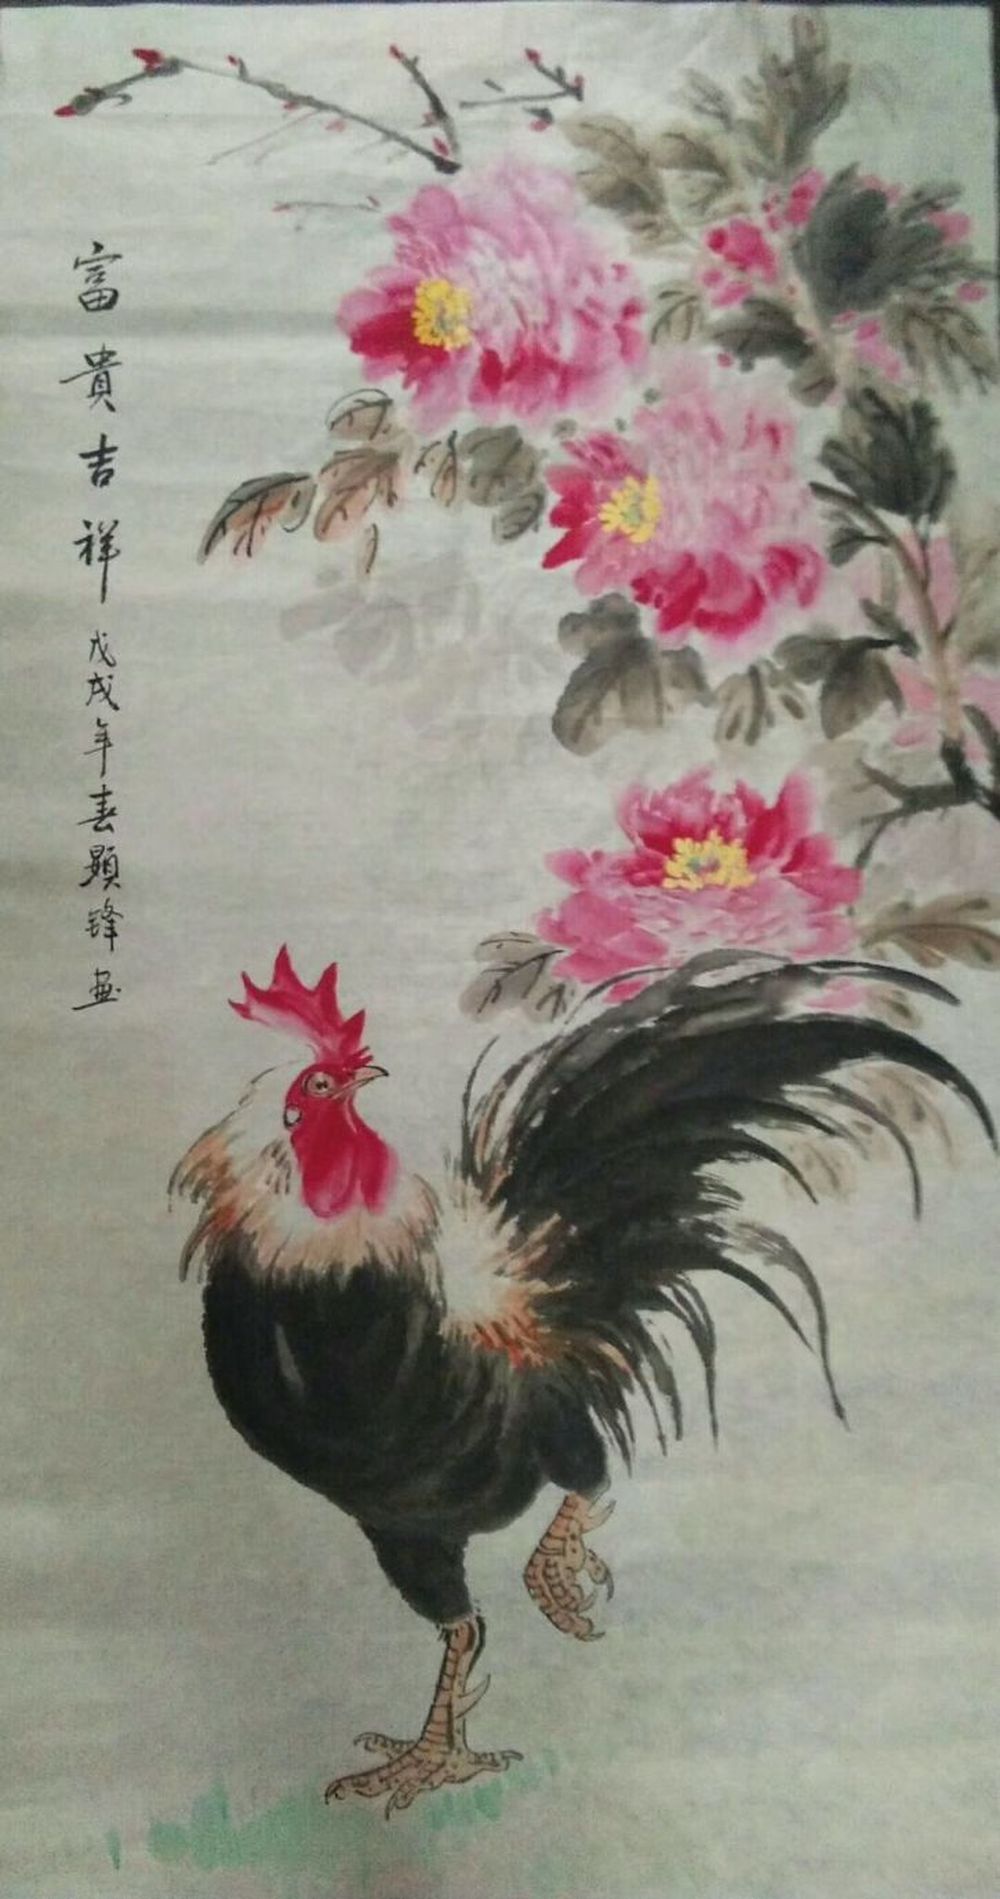 富貴吉祥 戊戌年春顯锋画